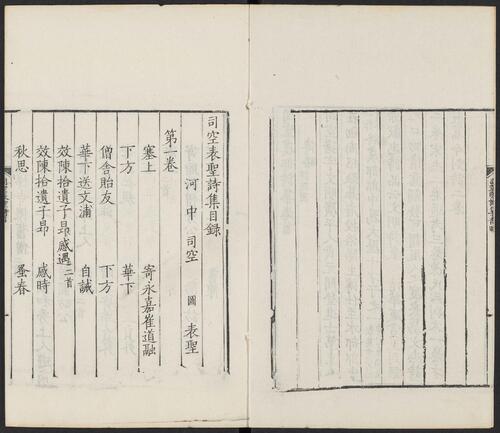 司空表聖詩集目錄
河中司空 圖 表聖
第一卷
塞上 寄永嘉崔道融
下方 華下
僧舍貽友 下方
華下送文浦 自誡
效陳拾遺子昂感遇二首
效陳拾遺子昂 感時
秋思 蚤春